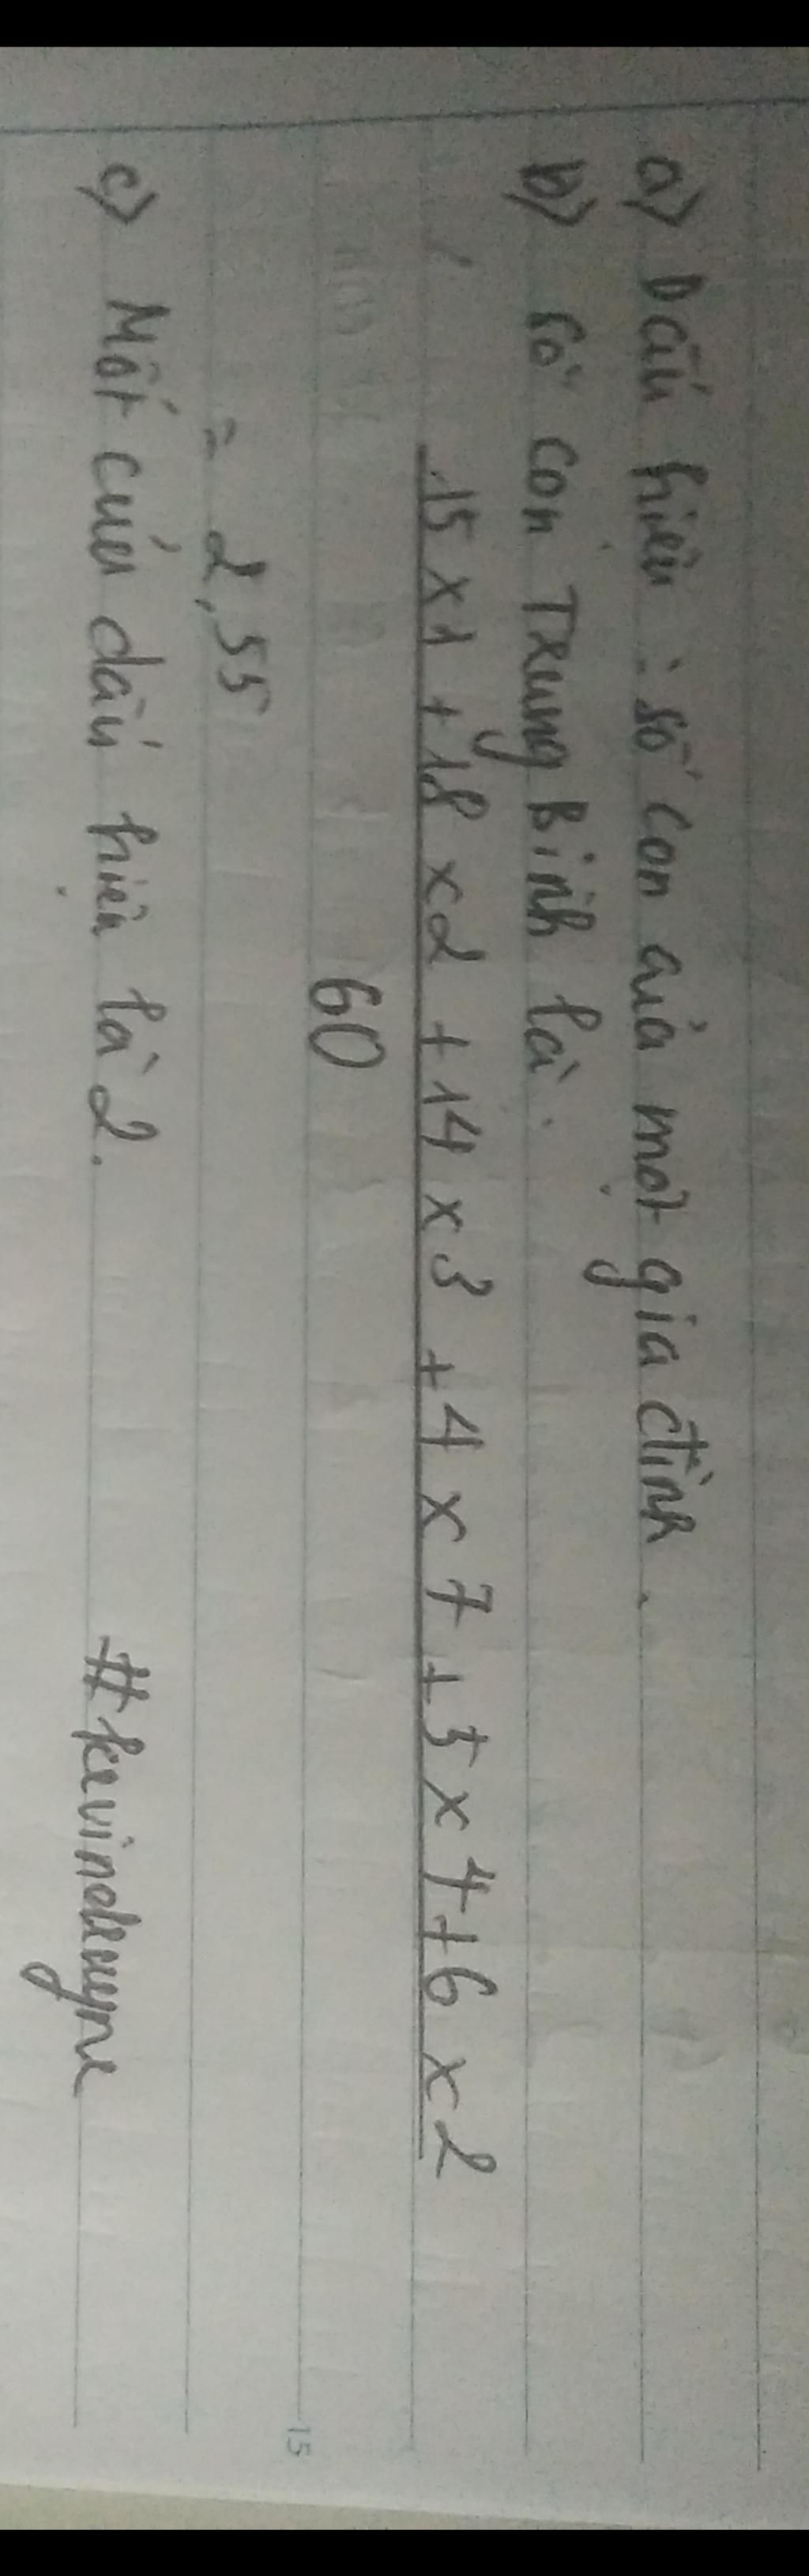 a) Dấu hiệu : số con của một gia đình .
b) Số con Trung Bình là :
15 x1 + 18 x2 + 14 x 3 + 4 x 7 + 5 x 4 + 6 x 2
60
= 2,55
c) Mốt của dấu hiệu là 2.
#kevindeuyne
15